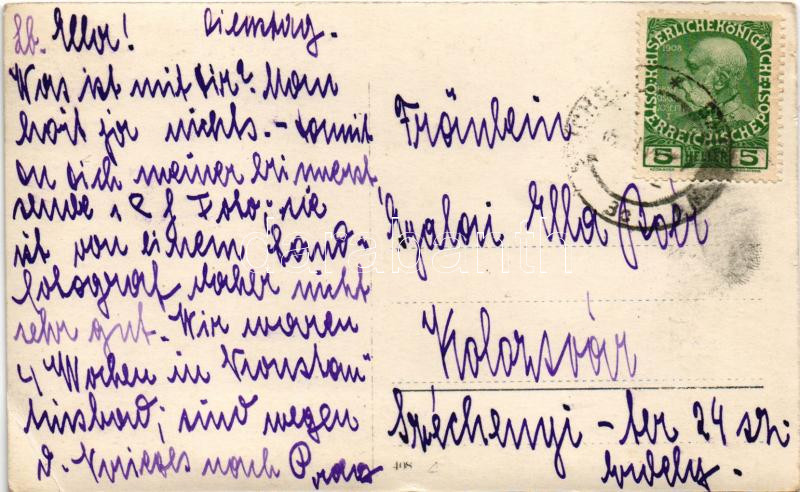 Lb. Ella! Dienstag.
Was ist mit Dir? Man
hört ja nichts. - Damit
Du Dich meiner erinnerst
sende 1 Foto; sie
ist von einem Land-
fotograf daher nicht
sehr gut. Wir waren
4 Wochen in "Konstan"
tinsbad; sind wegen
d. Krieges nach Prag
Fräulein
Gyalai Ella
Kolozsvár
Széchenyi - ter 24 sz.
Erdély.
KAISERLICHE KÖNIGLICHE
ÖSTERREICHISCHE POST
1908
5 HELLER 5
darabanth